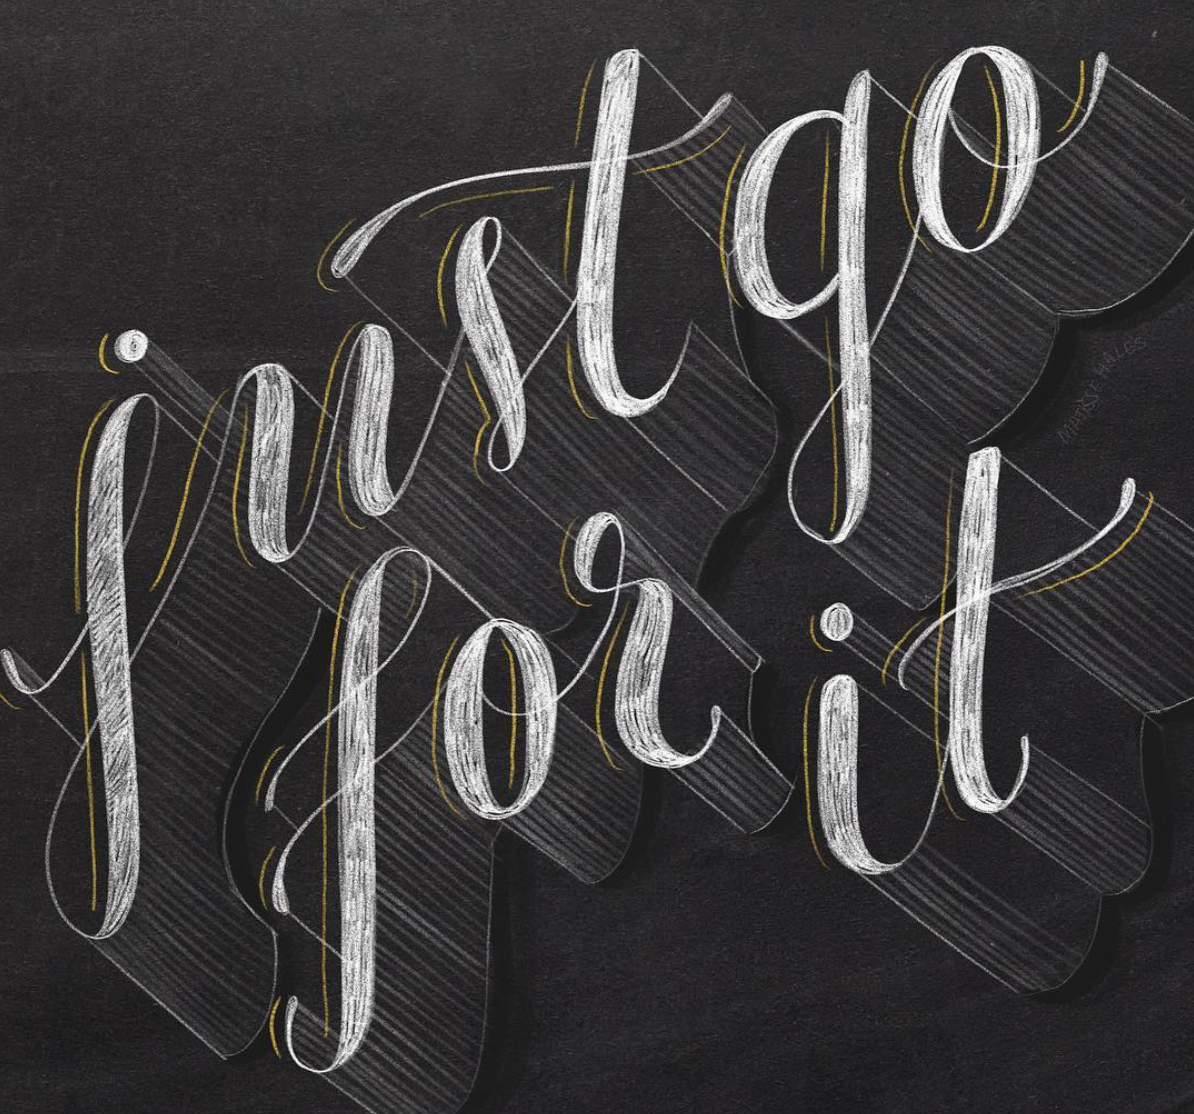 just go
for it
MARISSE HALES